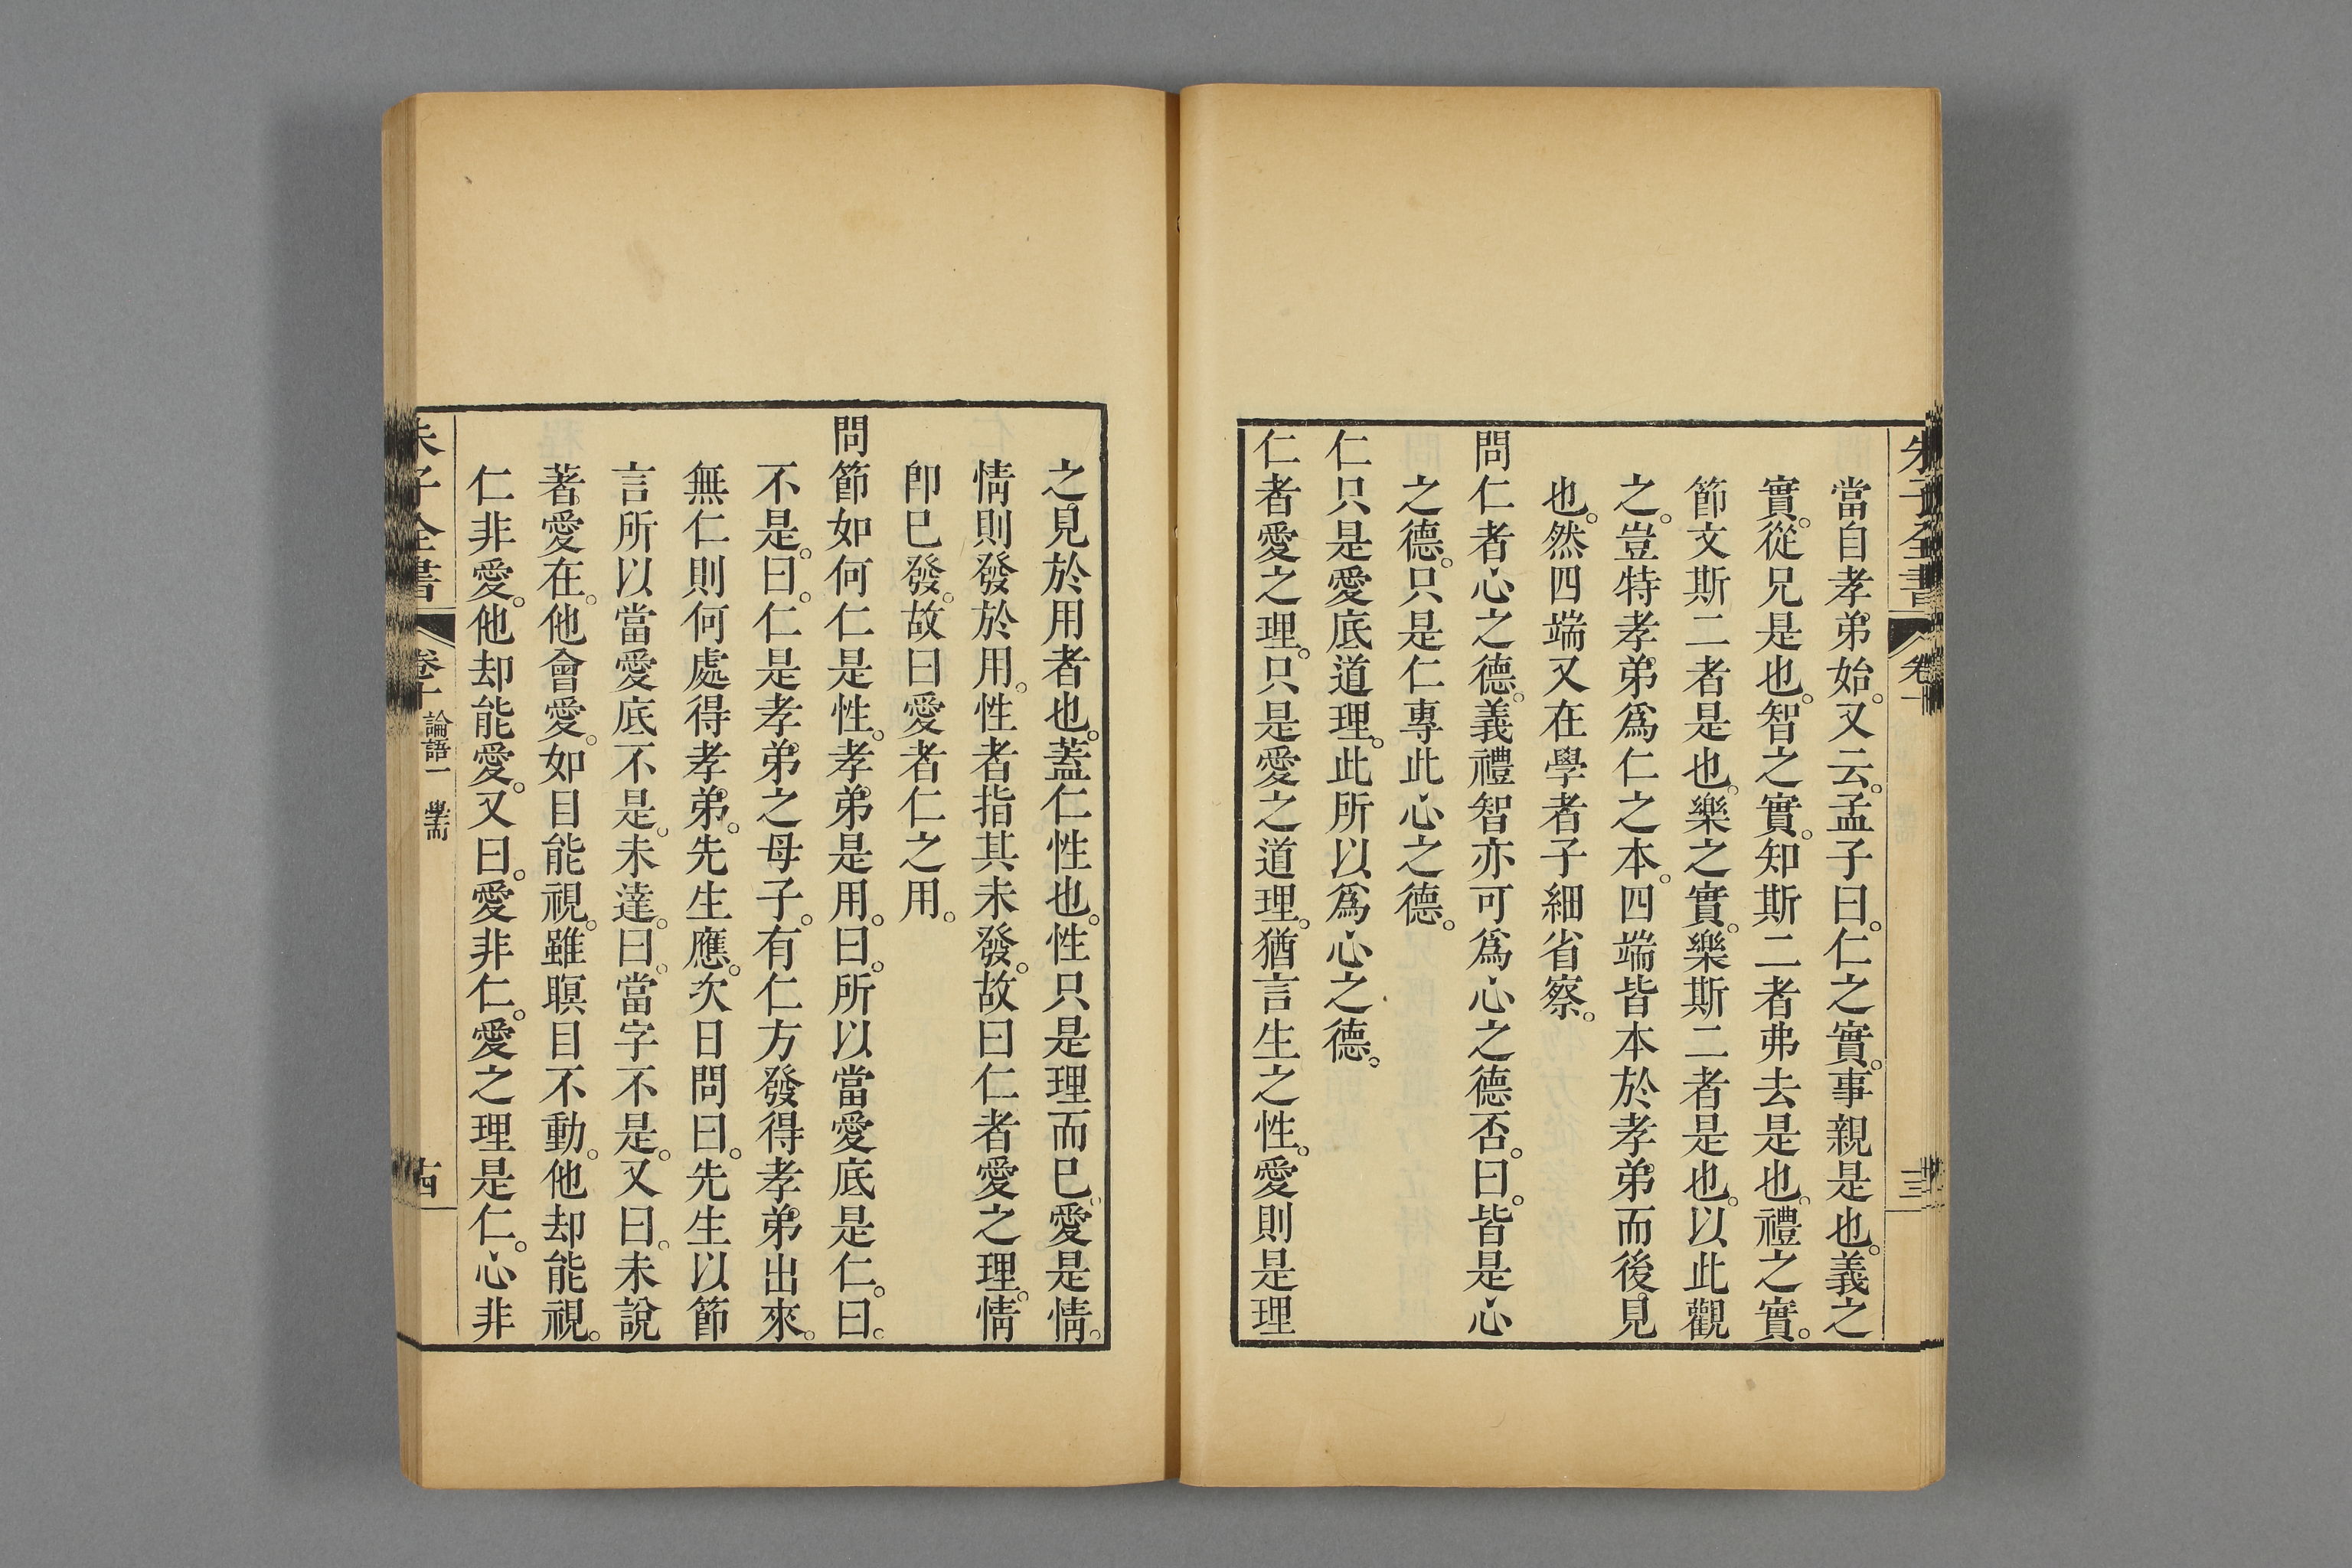 當自孝弟始。又云。孟子曰。仁之實。事親是也。義之
實。從兄是也。智之實。知斯二者弗去是也。禮之實。
節文斯二者是也。樂之實。樂斯二者是也。以此觀
之。豈特孝弟爲仁之本。四端皆本於孝弟而後見
也。然四端又在學者子細省察。
問仁者心之德。義禮智亦可爲心之德否。曰。皆是心
之德。只是仁專此心之德。
仁只是愛底道理。此所以爲心之德。
仁者愛之理。只是愛之道理。猶言生之性。愛則是理
之見於用者也。蓋仁性也。性只是理而已。愛是情。
情則發於用。性者指其未發。故曰仁者愛之理。情
卽已發。故曰愛者仁之用。
問節如何仁是性。孝弟是用。曰。所以當愛底是仁。曰。
不是。曰。仁是孝弟之母子。有仁方發得孝弟出來。
無仁則何處得孝弟。先生應。次日問曰。先生以節
言所以當愛底不是。未達。曰。當字不是。又曰。未說
著愛在。他會愛。如目能視。雖瞑目不動。他却能視。
仁非愛。他却能愛。又曰。愛非仁。愛之理是仁。心非
朱子全書
卷十
論語一